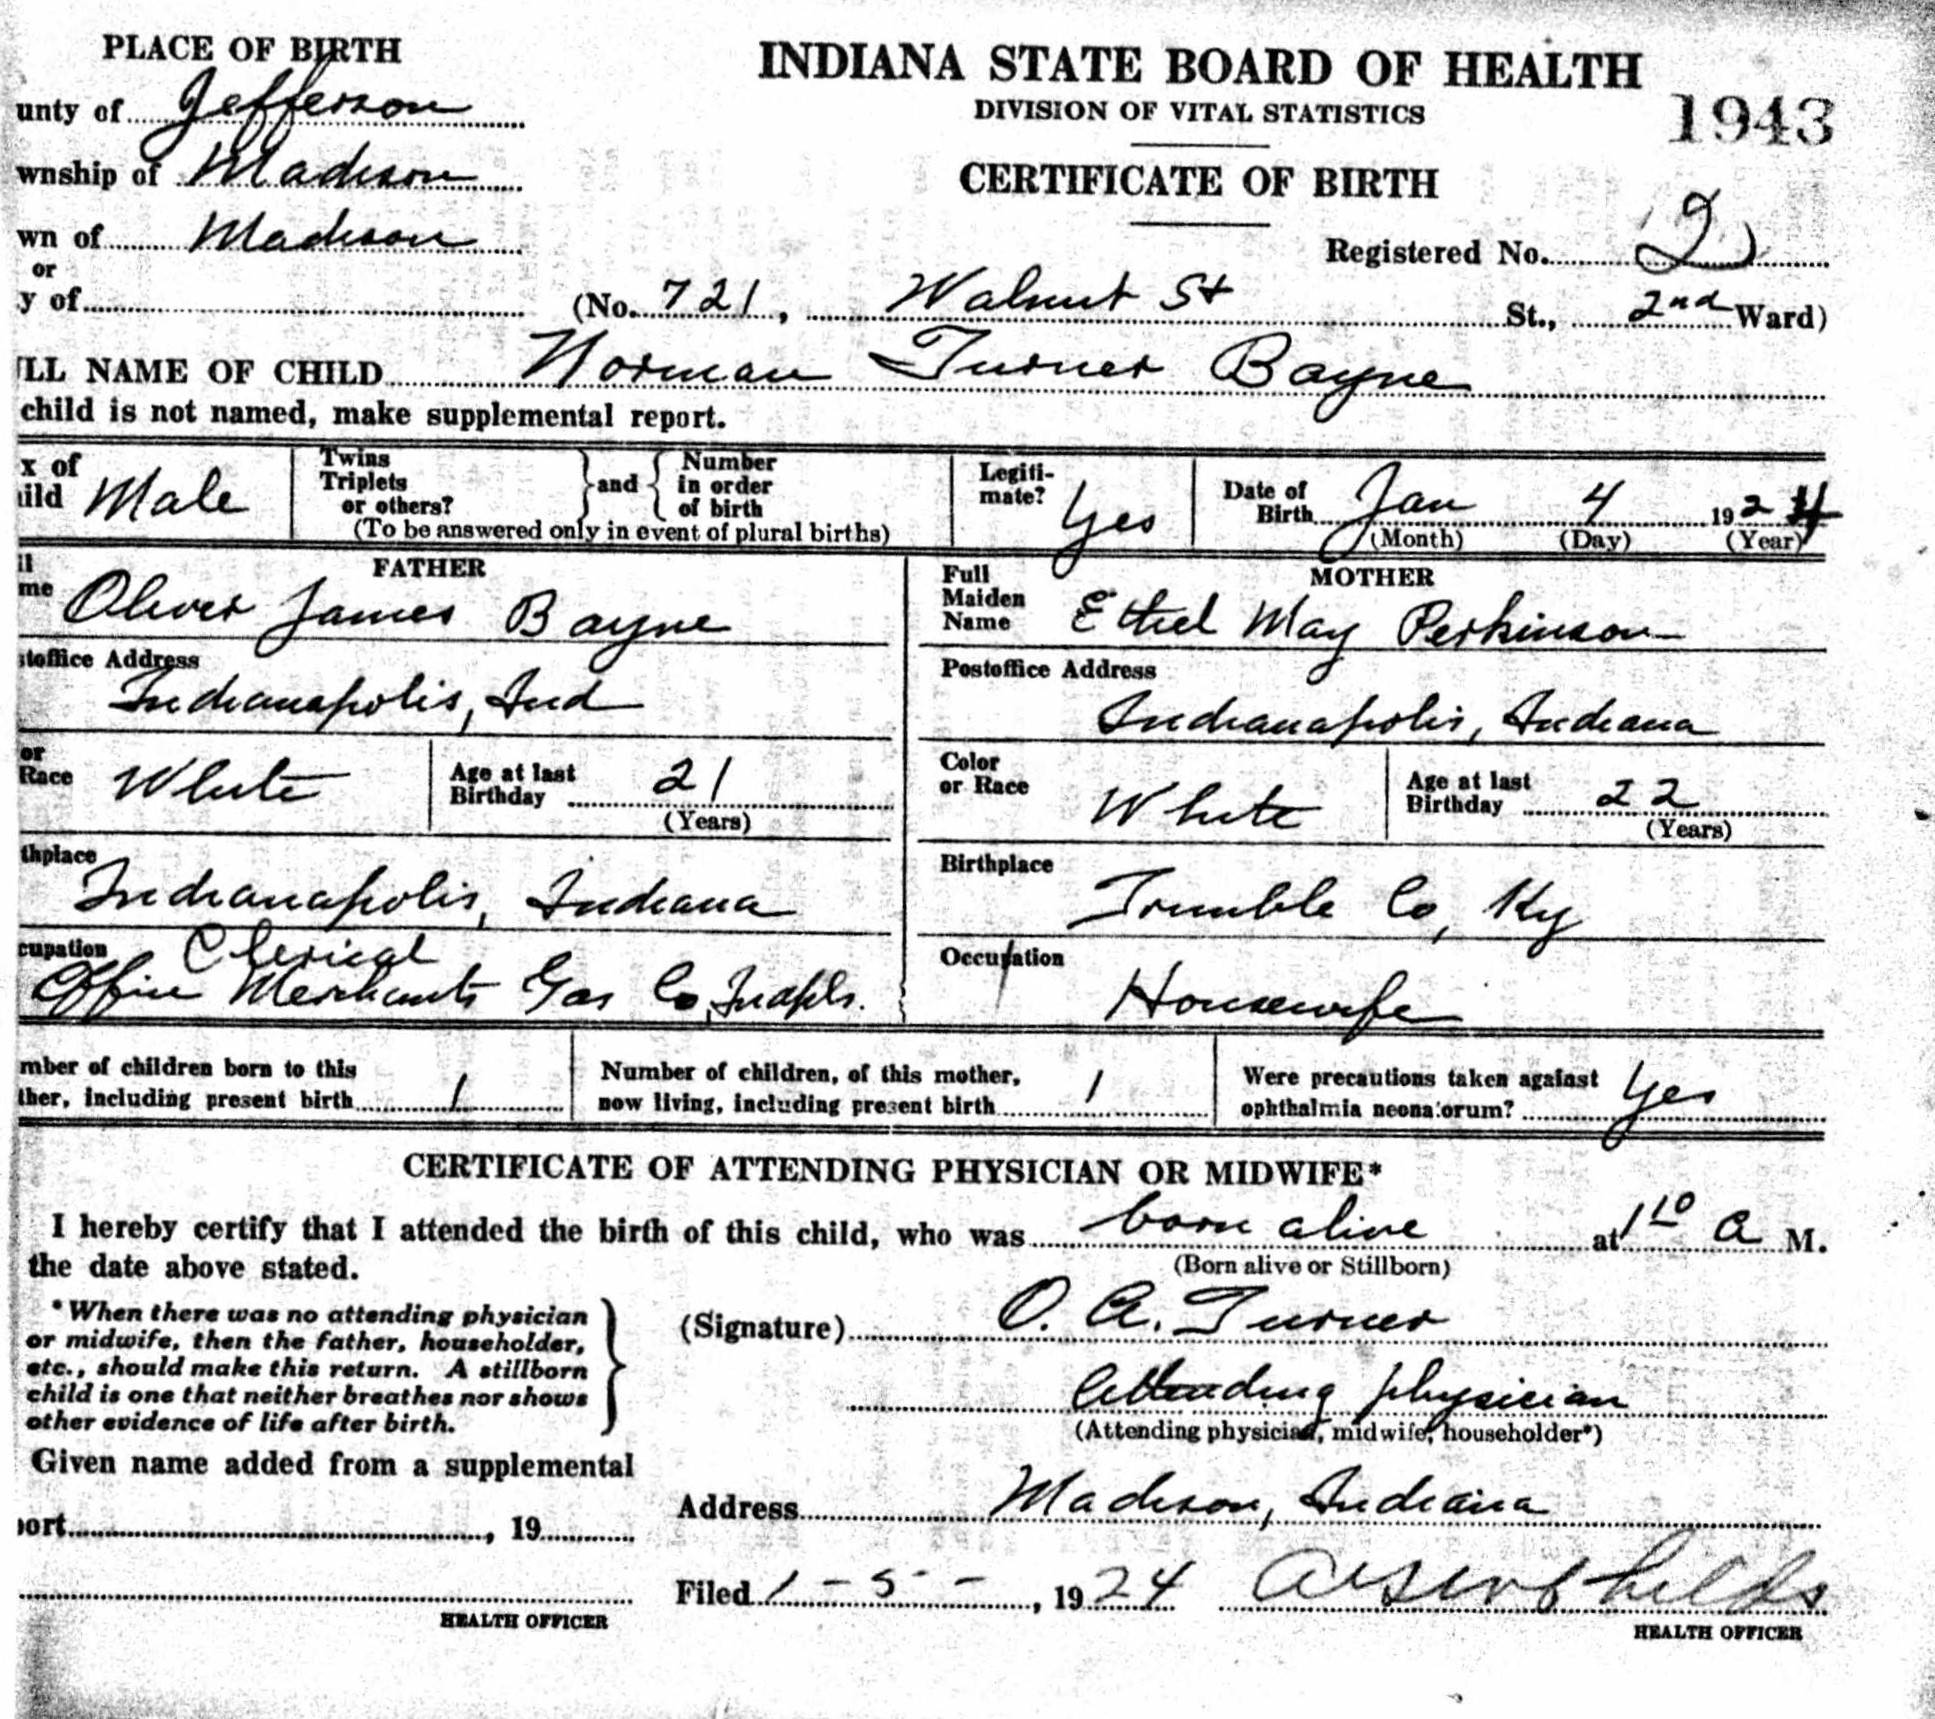 PLACE OF BIRTH
unty of Jefferson
wnship of Madison
wn of Madison
or
y of
INDIANA STATE BOARD OF HEALTH
DIVISION OF VITAL STATISTICS
1943
CERTIFICATE OF BIRTH
Registered No. 2
(No. 721, Walnut St St., 2nd Ward)
LL NAME OF CHILD Norman Turner Bayne
child is not named, make supplemental report.
x of
ild Male
Twins
Triplets
or others?
and
Number
in order
of birth
(To be answered only in event of plural births)
Legiti-
mate? Yes
Date of
Birth Jan 4 1924
(Month) (Day) (Year)
FATHER
ll
me Oliver James Bayne
stoffice Address
Indianapolis, Ind
or
Race White
Age at last
Birthday 21
(Years)
thplace
Indianapolis, Indiana
cupation Clerical
Office Merchants Gas Co, Indpls.
MOTHER
Full
Maiden
Name Ethel May Perkinson
Postoffice Address
Indianapolis, Indiana
Color
or Race White
Age at last
Birthday 22
(Years)
Birthplace
Trimble Co, Ky
Occupation
Housewife
mber of children born to this
ther, including present birth 1
Number of children, of this mother,
now living, including present birth 1
Were precautions taken against
ophthalmia neonatorum? Yes
CERTIFICATE OF ATTENDING PHYSICIAN OR MIDWIFE*
I hereby certify that I attended the birth of this child, who was born alive at 1 10 A M.
(Born alive or Stillborn)
the date above stated.
*When there was no attending physician
or midwife, then the father, householder,
etc., should make this return. A stillborn
child is one that neither breathes nor shows
other evidence of life after birth.
(Signature) O. A. Turner
Attending physician
(Attending physician, midwife, householder*)
Given name added from a supplemental
port, 19
HEALTH OFFICER
Address Madison, Indiana
Filed 1-5-, 1924
HEALTH OFFICER